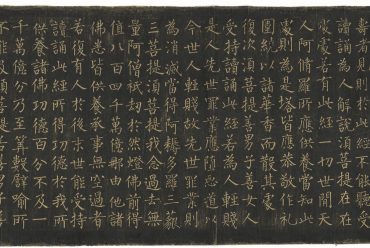 壽者見則於此經不能聽受
讀誦為人解說須菩提在在
處處若有此經一切世間天
人阿脩羅所應供養當知此
處則為是塔皆應恭敬作礼
圍繞以諸華香而散其處
復次須菩提善男子善女人
受持讀誦此經若為人輕賤
是人先世罪業應墮惡道以
今世人輕賤故先世罪業則
為消滅當得阿耨多羅三藐
三菩提須菩提我念過去無
量阿僧祇劫於然燈佛前得
值八百四千萬億那由他諸
佛悉皆供養承事無空過者
若復有人於後末世能受持
讀誦此經所得功德於我所
供養諸佛功德百分不及一
千萬億分乃至筭數譬喻所